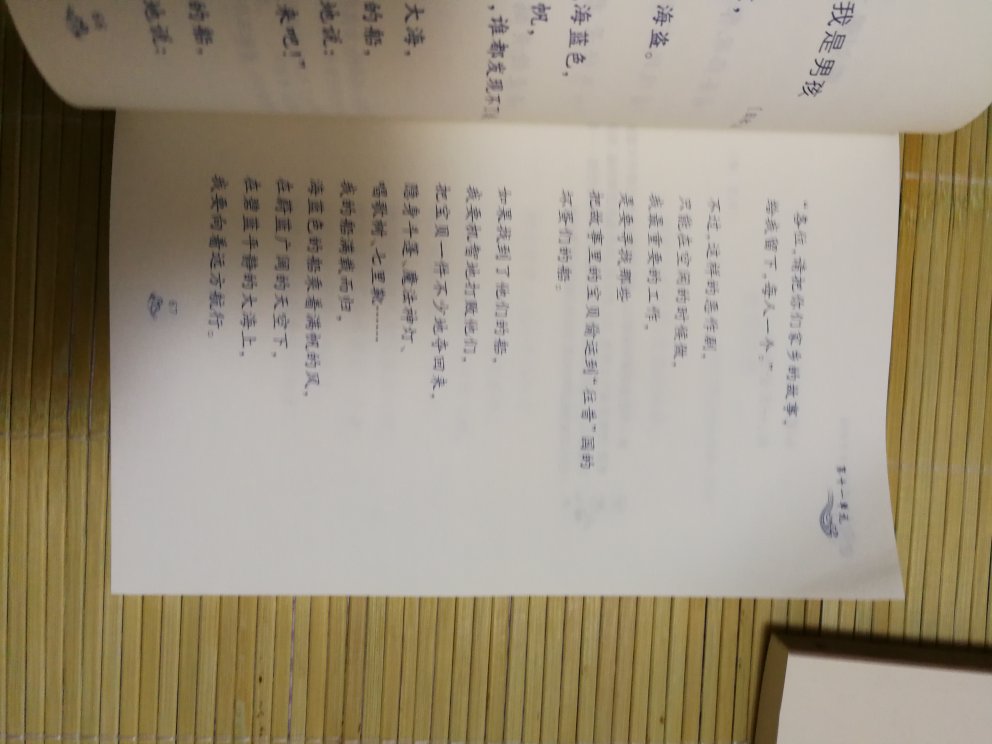 我是男孩
海盗。
海蓝色，
帆，
，谁都发现不了
大海，
的船，
地说：
来吧！”
的船。
地说：
第十一单元
“各位，请把你们家乡的故事，
给我留下，每人一个。”
不过，这样的恶作剧，
只能在空闲的时候做。
我最重要的工作，
是要寻找那些
把故事里的宝贝偷运到“狂暑”国的
坏蛋们的船。
如果找到了他们的船，
我要机智地打败他们，
把宝贝一件不少地夺回来，
隐身斗篷、魔法神灯、
唱歌树、七里靴……
我的船满载而归，
海蓝色的船乘着满帆的风，
在蔚蓝广阔的天空下，
在碧蓝平静的大海上，
我要向着远方航行。
67